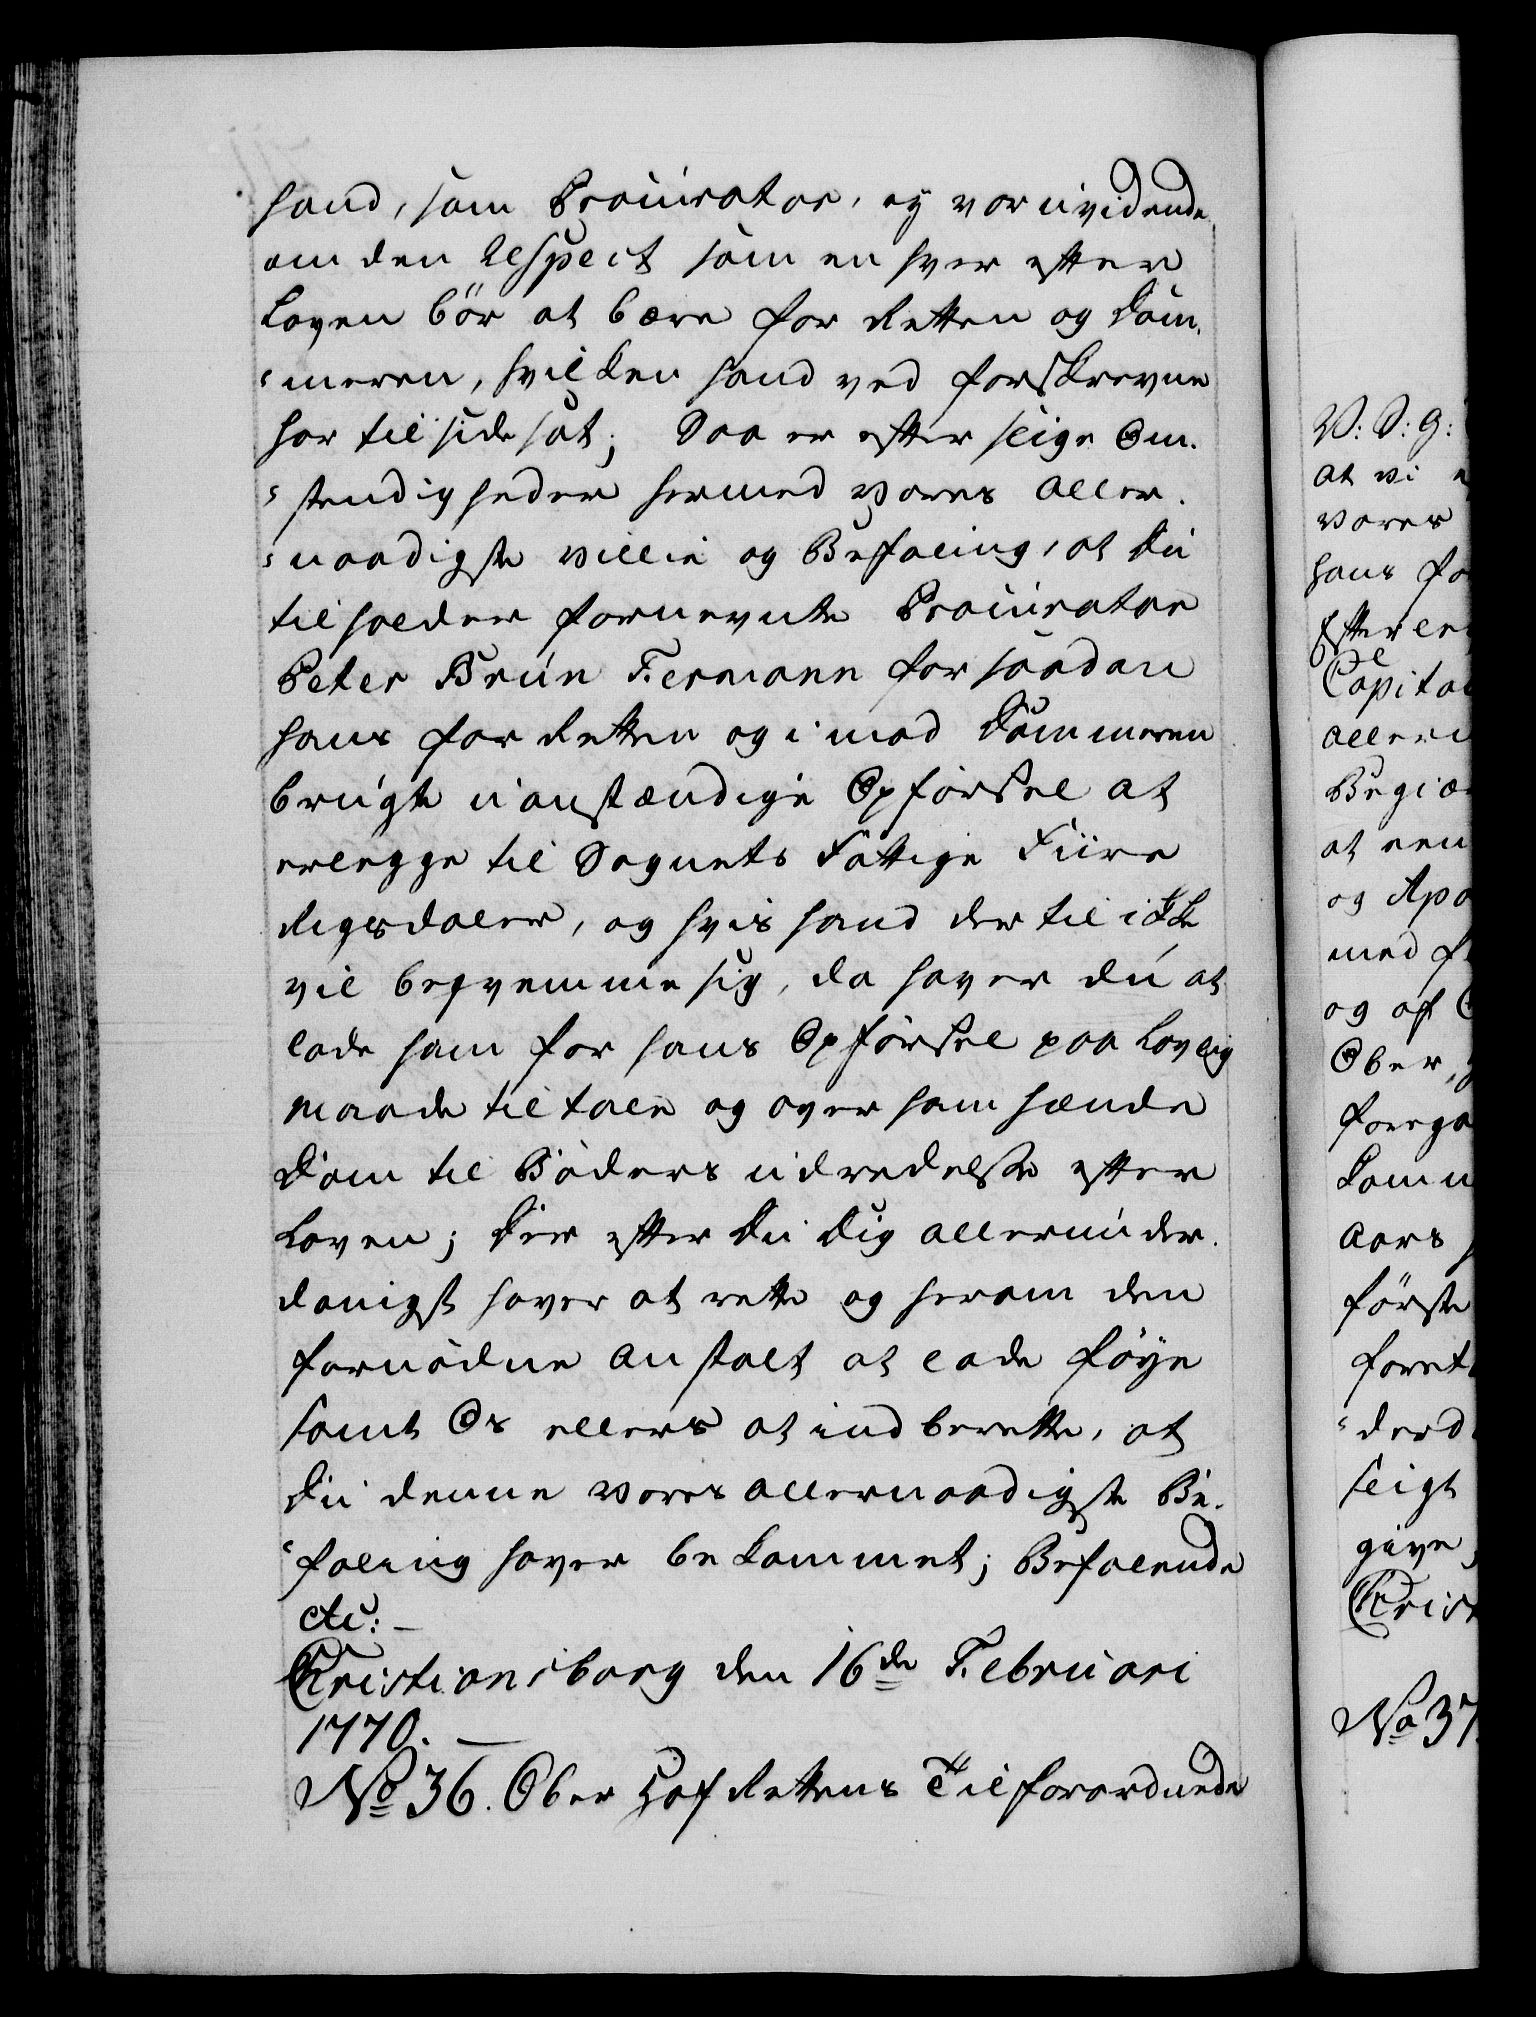 hand, som Procurator, ey var uvidende
om den Respect som en hver efter
Loven bör at bære for Retten og Dom-
meren, hvilken hand ved forskrevne
har tilsidesat; Saa er efter slige Om-
stendigheder hermed Vores aller-
naadigste Villie og Befaling, at Du
tilholder fornevnte Procurator
Peter Brun Fermann for saadan
hans for Retten og imod Dommeren
brugte uanstændige Opförsel at
erlegge til Sognets Fattige Fiire
Rigsdaler, og hvis hand der til ikke
vil beqvemme sig, da haver du at
lade ham for hans Opförsel paa Lovlig
maade tiltale og over ham hænde
Dom til Böders udredelse efter
Loven; Der efter Du Dig allerunder-
danigst haver at rette og herom den
fornödne Anstalt at lade föye
samt Os ellers at indberette, at
Du denne Vores allernaadigste Be-
faling haver bekommet; Befalende
etc: –
Christiansborg den 16de Februari
1770. –
No 36. Ober Hof Rettens Tilforordnede
V: S: G:
at vi
Vores
hans
Efter
Capita
aller
Begiæ
at een
og Apo
med
og af
Ober,
forega
Kom
Aars
förste
foret
derd
sligt
give,
Christ
No 37